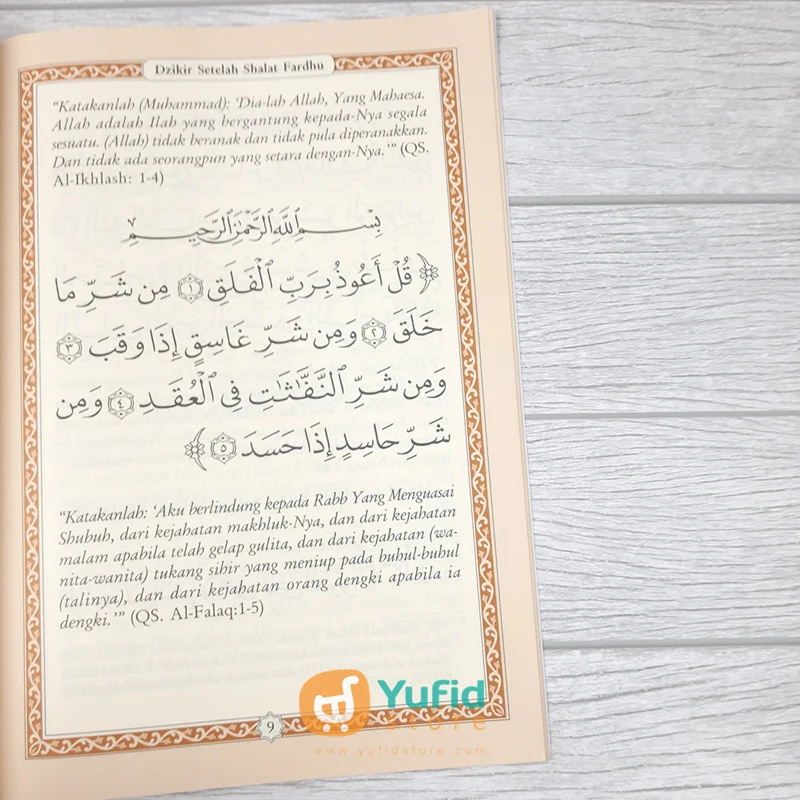 Dzikir Setelah Shalat Fardhu
“Katakanlah (Muhammad): ‘Dia-lah Allah, Yang Mahaesa.
Allah adalah Ilah yang bergantung kepada-Nya segala
sesuatu. (Allah) tidak beranak dan tidak pula diperanakkan.
Dan tidak ada seorangpun yang setara dengan-Nya.’” (QS.
Al-Ikhlash: 1-4)
بِسْمِ اللَّهِ الرَّحْمَٰنِ الرَّحِيمِ
﴿ قُلْ أَعُوذُ بِرَبِّ ٱلْفَلَقِ ۝١ مِن شَرِّ مَا
خَلَقَ ۝٢ وَمِن شَرِّ غَاسِقٍ إِذَا وَقَبَ ۝٣
وَمِن شَرِّ ٱلنَّفَّٰثَٰتِ فِى ٱلْعُقَدِ ۝٤ وَمِن
شَرِّ حَاسِدٍ إِذَا حَسَدَ ۝٥ ﴾
“Katakanlah: ‘Aku berlindung kepada Rabb Yang Menguasai
Shubuh, dari kejahatan makhluk-Nya, dan dari kejahatan
malam apabila telah gelap gulita, dan dari kejahatan (wa-
nita-wanita) tukang sihir yang meniup pada buhul-buhul
(talinya), dan dari kejahatan orang dengki apabila ia
dengki.’” (QS. Al-Falaq:1-5)
9
Yufid
store
www.yufidstore.com